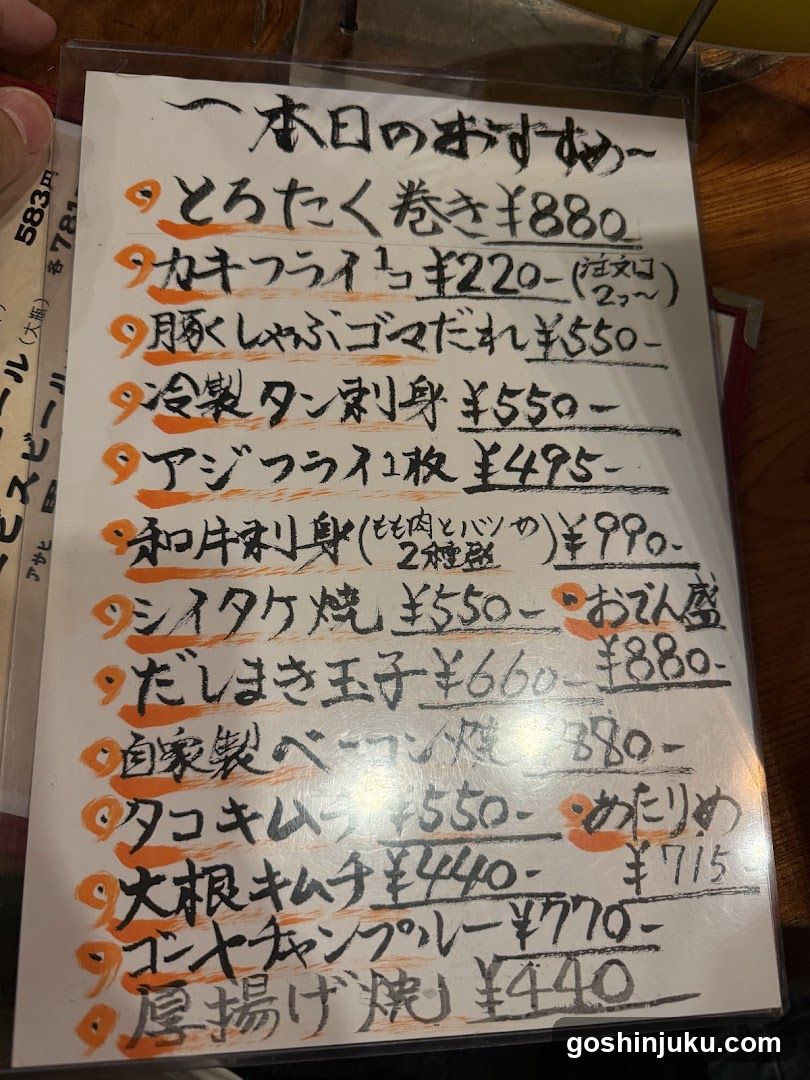 ~本日のおすすめ~
とろたく巻き ¥880
カキフライ 1コ ¥220- (注文は2コ~)
豚しゃぶゴマだれ ¥550-
冷製タン刺身 ¥550-
アジフライ 1枚 ¥495-
和牛刺身(もも肉とハツの2種盛) ¥990-
シイタケ焼 ¥550-
おでん盛 ¥880-
だしまき玉子 ¥660-
自家製ベーコン焼 ¥880-
タコキムチ ¥550-
めたりめ ¥715-
大根キムチ ¥440-
ゴーヤチャンプルー ¥770-
厚揚げ焼 ¥440
583円
各781
(大瓶)
アサヒ
goshinjuku.com